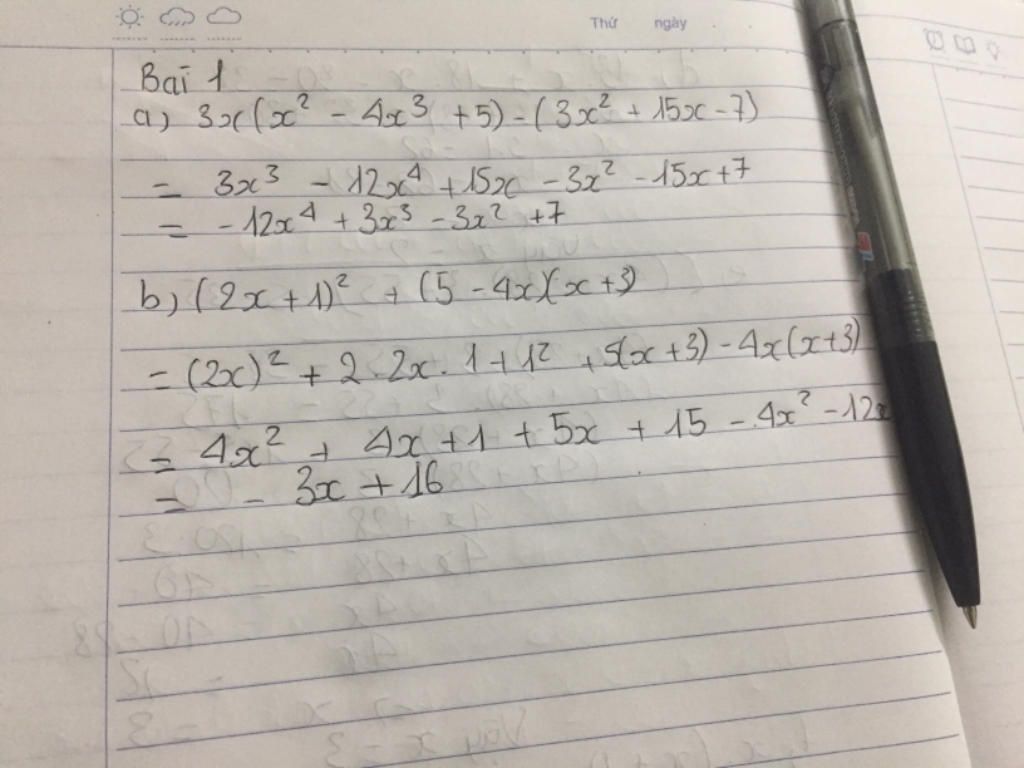 Thứ ngày
Bài 1
a) 3x(x² - 4x³ + 5) - (3x² + 15x - 7)
= 3x³ - 12x⁴ + 15x - 3x² - 15x + 7
= -12x⁴ + 3x³ - 3x² + 7
b) (2x + 1)² + (5 - 4x)(x + 3)
= (2x)² + 2.2x.1 + 1² + 5(x + 3) - 4x(x + 3)
= 4x² + 4x + 1 + 5x + 15 - 4x² - 12x
= - 3x + 16